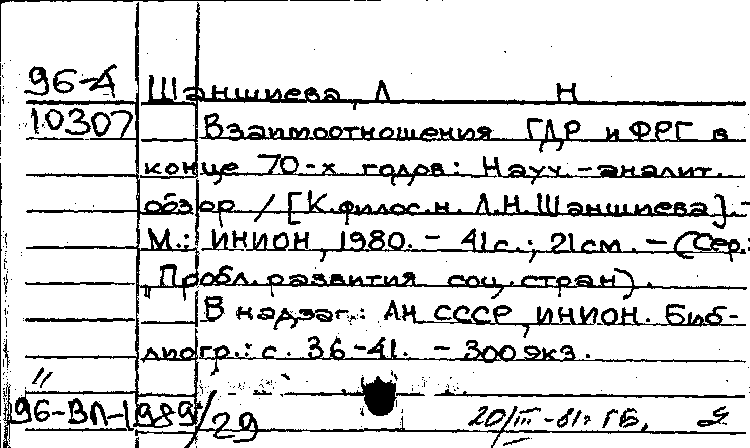 96-4 Шаншиева, Л Н
10307 Взаимоотношения ГДР и ФРГ в
конце 70-х годов: Науч.-аналит.
обзор / [К.филос.н. Л.Н.Шаншиева]. -
М.: ИНИОН, 1980. - 41с.; 21см. - (Сер.:
„Пробл. развития соц. стран).
В надзаг.: АН СССР, ИНИОН. Биб-
лиогр.: с. 36-41. - 300экз.
"
96-ВЛ-1989/29 20/III-81г ГБ,